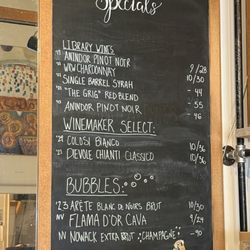 Specials
LIBRARY WINES
ANINDOR PINOT NOIR
WVW CHARDONNAY 9/28
SINGLE BARREL SYRAH 10/30
"THE GRIG" RED BLEND - 44
ANINDOR PINOT NOIR - 55
- 46
WINEMAKER SELECT:
COLOSI BIANCO 10/36
DIEVOLE CHIANTI CLASSICO 10/36
BUBBLES:
'23 ARÈTE BLANC DE NOIRS BRUT 10/30
NV FLAMA D'OR CAVA 9/24
NV NOWACK EXTRA BRUT CHAMPAGNE - 90